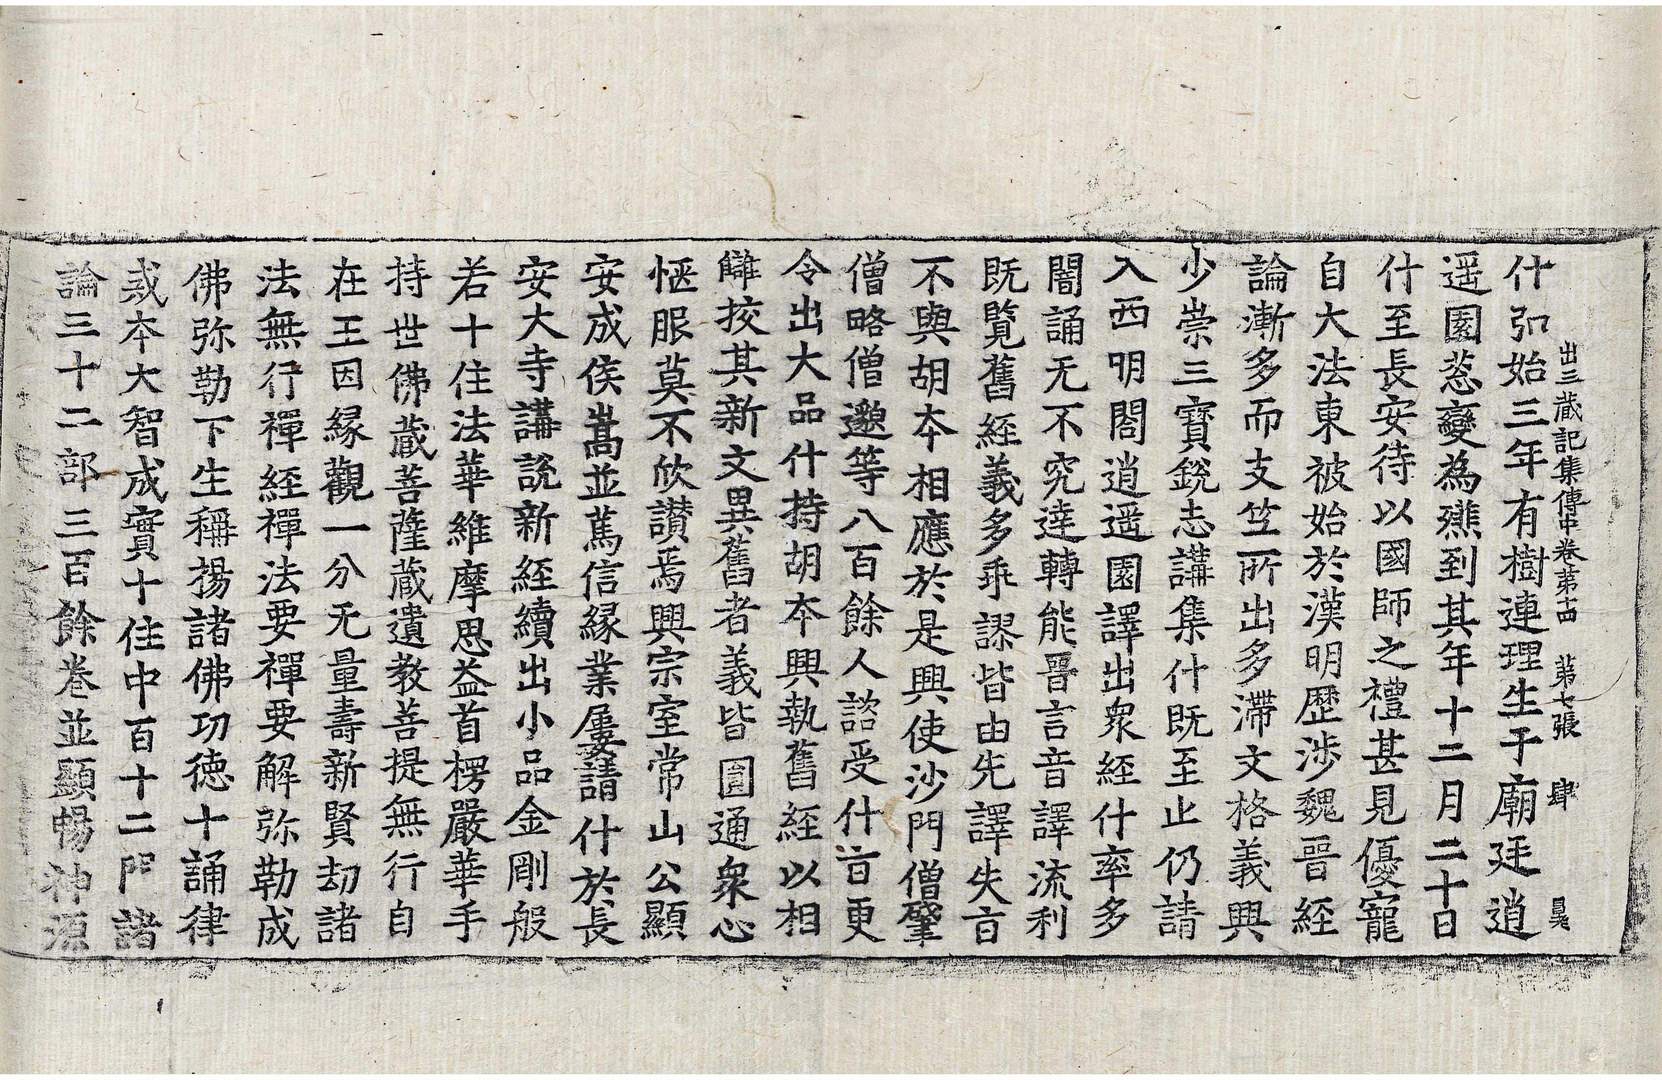 出三藏記集傳中卷第十四　第七張　肆　昃
什弘始三年有樹連理生于廟廷逍
遥園葱變為䓗到其年十二月二十日
什至長安待以國師之禮甚見優寵
自大法東被始於漢明歷涉魏晉經
論漸多而支竺所出多滯文格義興
少崇三寶銳志講集什既至止仍請
入西明閣逍遥園譯出衆經什率多
闇誦无不究達轉能晉言音譯流利
既覽舊經義多乖謬皆由先譯失㫖
不與胡夲相應於是興使沙門僧肇
僧略僧邈等八百餘人諮受什㫖更
令出大品什持胡夲興執舊經以相
讎挍其新文異舊者義皆圓通衆心
惬服莫不欣讃焉興宗室常山公顯
安成侯嵩並篤信緣業屢請什於長
安大寺講說新經續出小品金剛般
若十住法華維摩思益首楞嚴華手
持世佛藏菩薩藏遺教菩提無行自
在王因緣觀一分无量壽新賢劫諸
法無行禪經禪法要禪要解弥勒成
佛弥勒下生稱揚諸佛功德十誦律
戒夲大智成實十住中百十二門諸
論三十二部三百餘卷並顯暢神源